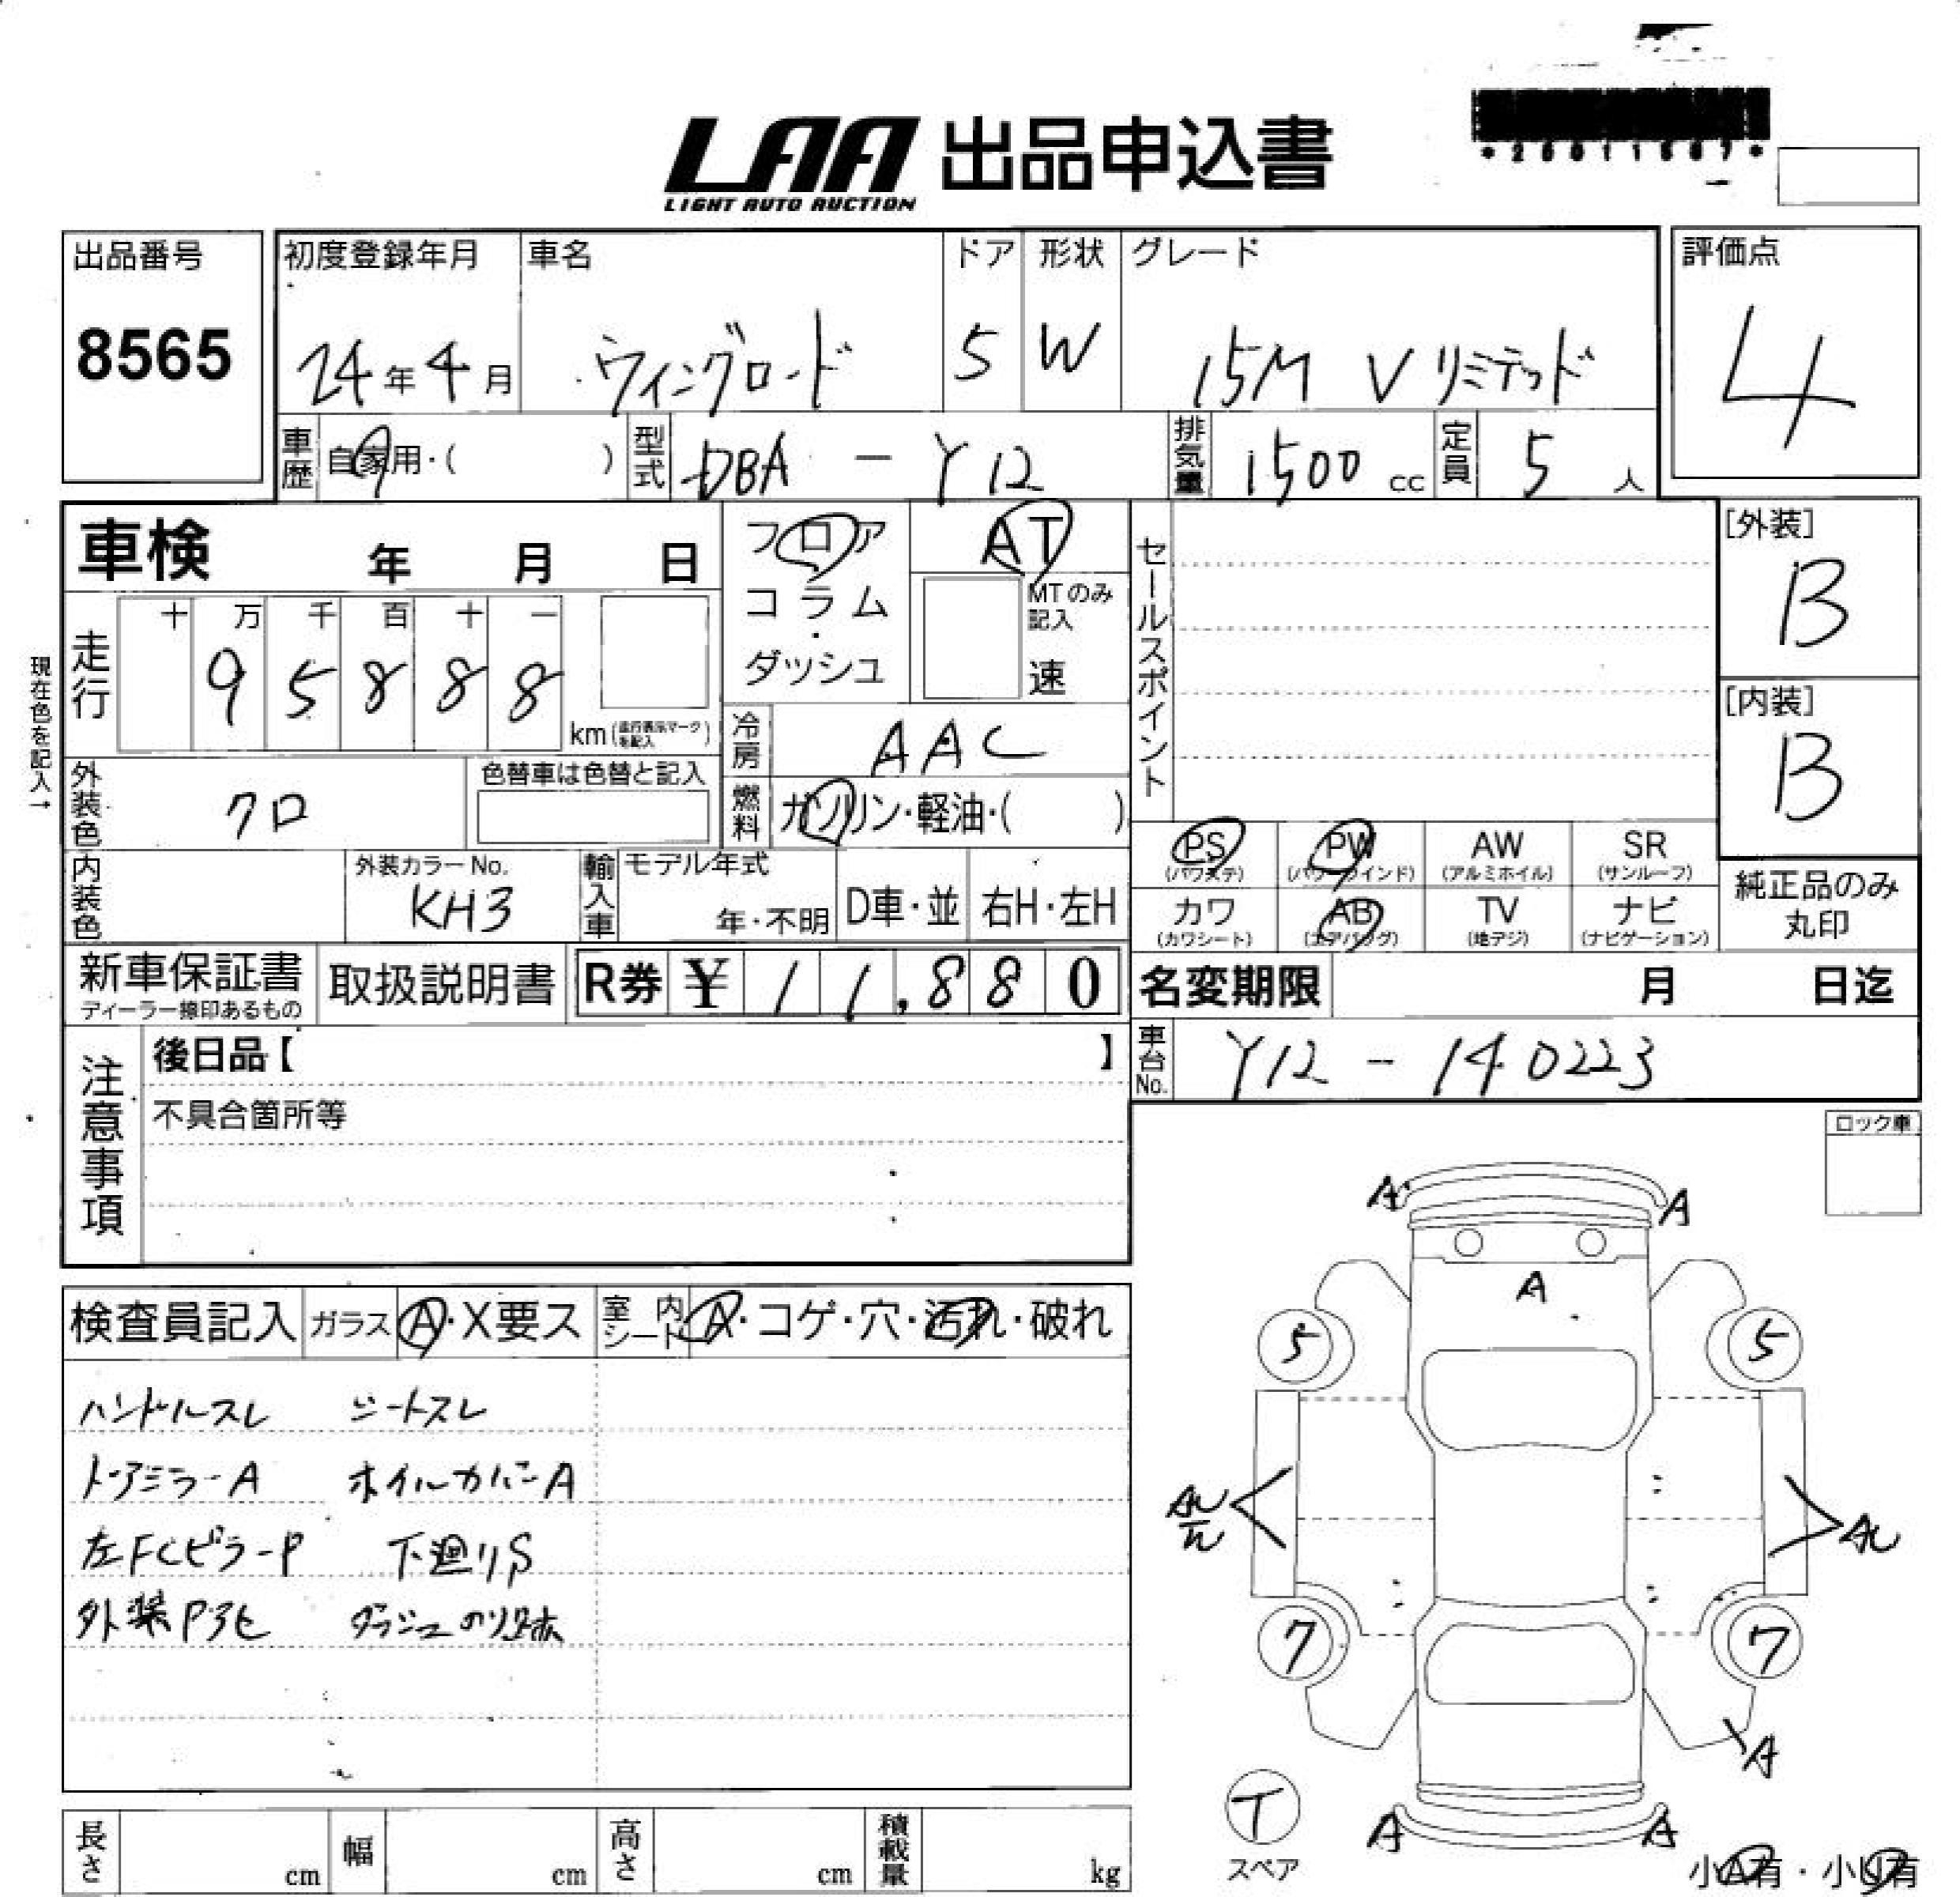 LAA 出品申込書
LIGHT AUTO AUCTION
出品番号
8565
初度登録年月
24年4月
車名
ウイングロード
ドア
5
形状
W
グレード
15M Vリミテッド
評価点
4
車歴 自家用・( )
型式 DBA - Y12
排気量 1500 cc
定員 5 人
車検 年 月 日
フロア
コラム・
ダッシュ
AT
MTのみ
記入
速
セールスポイント
[外装]
B
[内装]
B
現在色を記入→
走行 十 万 千 百 十 一
9 5 8 8 8
km(走行表示マークを記入)
冷房 AAC
外装色 クロ
色替車は色替と記入
燃料 ガソリン・軽油・( )
内装色
外装カラーNo.
KH3
輸入車
モデル年式
年・不明
D車・並
右H・左H
PS
(パワステ)
PW
(パワーウインド)
AW
(アルミホイル)
SR
(サンルーフ)
カワ
(カワシート)
AB
(エアバッグ)
TV
(地デジ)
ナビ
(ナビゲーション)
純正品のみ
丸印
新車保証書
ディーラー捺印あるもの
取扱説明書
R券 ¥ 11,880
名変期限 月 日迄
車台No. Y12 - 140223
注意事項
後日品【 】
不具合箇所等
ロック車
検査員記入 ガラス A・X要ス 室内シート A・コゲ・穴・汚れ・破れ
ハンドルスレ シートスレ
ドアミラーA ホイルカバーA
左FCピラーP 下廻りS
外装P3ヒ ダッシュのり跡
A A
A
5 5
AU AU
7 7
A
T
スペア
A A
小A有・小U有
長さ cm 幅 cm 高さ cm 積載量 kg